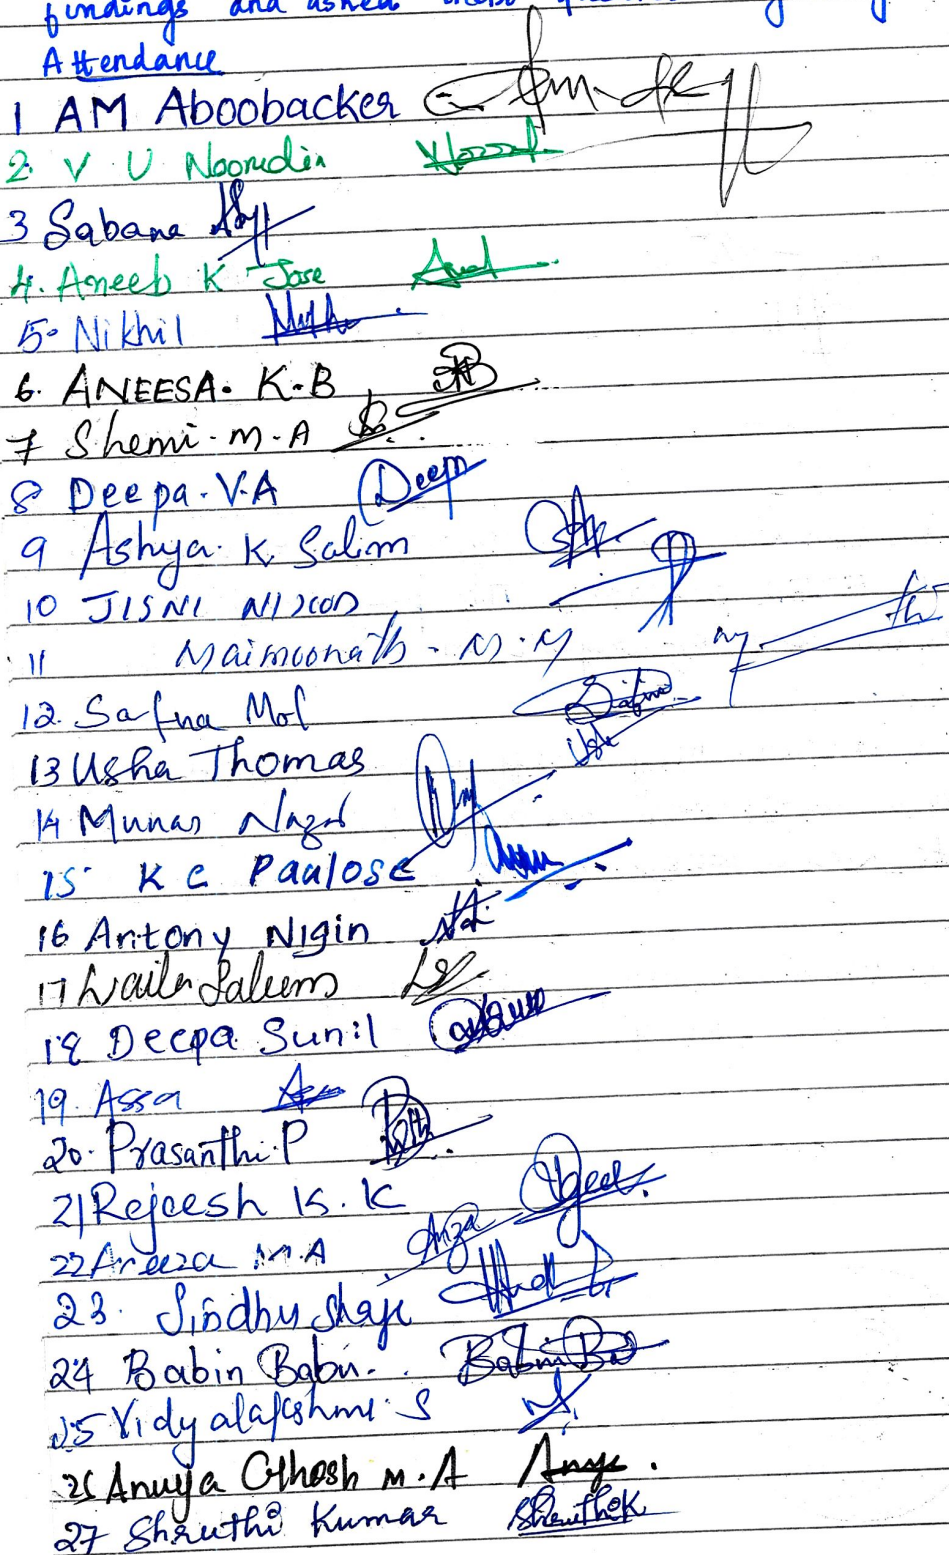 findings and asked
Attendance
1 AM Aboobacker
2. V U Noorudin
3 Sabana
4. Aneeb K Jose
5. Nikhil
6. ANEESA. K.B
7 Shemi. M. A
8 Deepa. V.A Deepa
9 Ashya. K. Salim
10 JISNI NIXON
11 Maimoonath - M. M
12. Safna Mol
13 Usha Thomas Usha
14 Munas
15. K C Paulose
16 Antony Nigin
17 Laila Saleem
18 Deepa Sunil
19. Assa
20. Prasanthi. P
21 Rejeesh K. K
22 Areeza M.A
23. Sindhu Shaji
24 Babin Babu.
25 Vidyalakshmi. S
26 Anuja Ghosh M. A
27 Shruthi Kumar ShruthiK